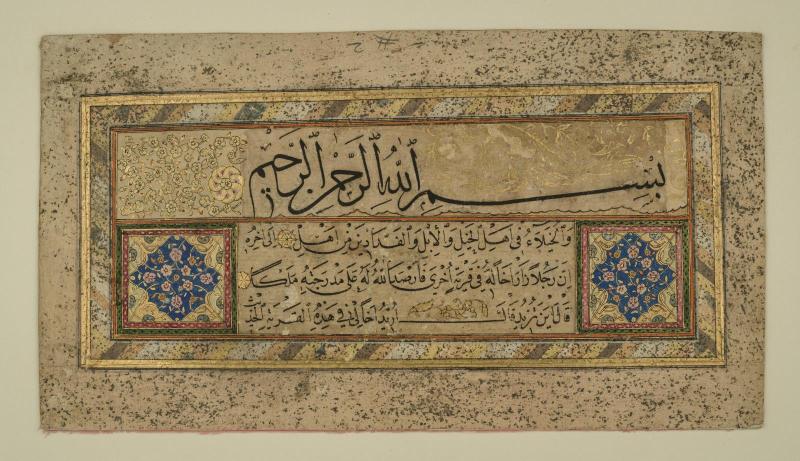 بِسْمِ ٱللَّهِ ٱلرَّحْمٰنِ ٱلرَّحِيمِ
وَالْخُيَلَاءُ فى اَهْلِ الْخَيْلِ وَالْاِبِلِ وَالْفَدَّادِينَ مِنْ اَهْلِ الى اخره
اِنَّ رَجُلًا زَارَ اَخًا لَهُ فى قَرْيَةٍ اُخْرٰى فَاَرْصَدَ اللهُ لَهُ عَلٰى مَدْرَجَتِهِ مَلَكًا
قَالَ اَيْنَ تُرِيدُ قَالَ اُرِيدُ اَخًا لى فى هٰذِهِ الْقَرْيَةِ الحديث